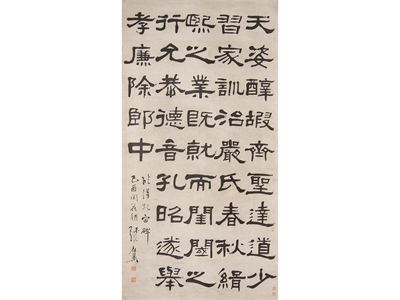 天姿醇嘏齊聖達道少
習家訓治嚴氏春秋緝
熙之業既就而閨閾之
行允恭德音孔昭遂舉
孝廉除郎中
臨漢孔宙碑
己酉閏